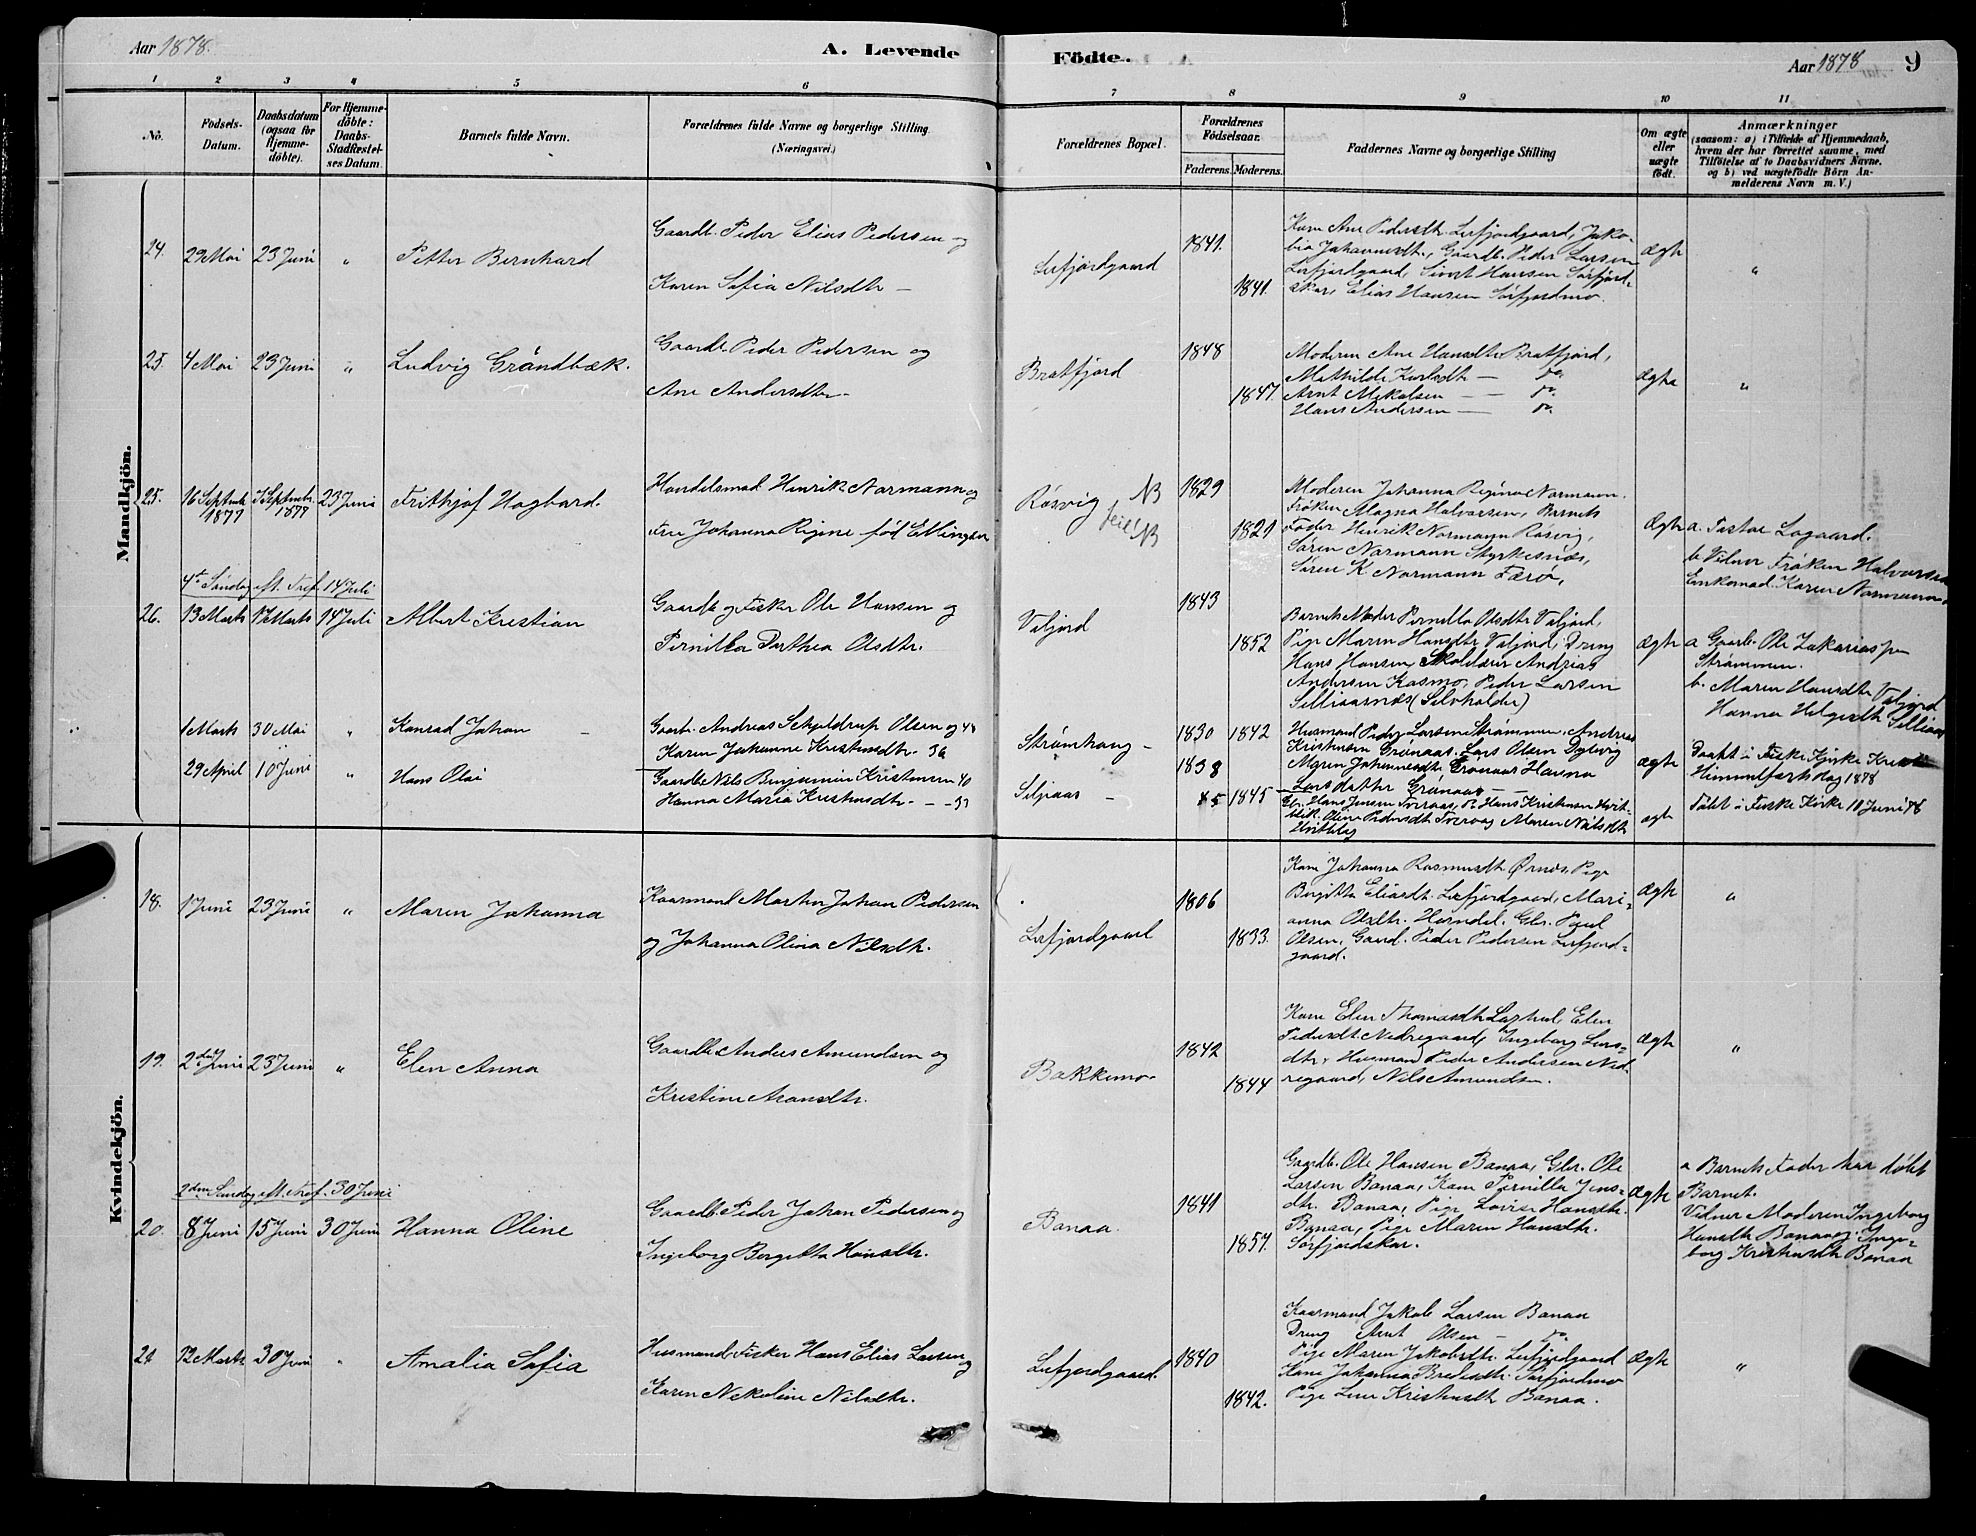 Aar 1878.
A. Levende
Födte.
Aar 1878
9
1 2 3 4 5 6 7 8 9 10 11
No.
Födsels-Datum.
Daabsdatum (ogsaa for Hjemmedöbte).
For Hjemmedöbte: Daabs-Stadfæstelses Datum.
Barnets fulde Navn.
Forældrenes fulde Navne og borgerlige Stilling.
(Næringsvei.)
Forældrenes Bopæl.
Forældrenes Födselsaar.
Faderens. Moderens.
Faddernes Navne og borgerlige Stilling
Om ægte eller uægte födt.
Anmærkninger
(saasom: a) i Tilfælde af Hjemmedaab,
hvem der har forrettet samme, med
Tilföielse af to Daabsvidners Navne.
og b) ved uægtefödte Börn An-
melderens Navn m. V.)
Mandkjön.
24. 29 Mai 23 Juni " Petter Bernhard
Gaardb. Peder Elias Pedersen og
Karen Sofia Nilsdtr –
Leifjordgaard
1841.
1841.
Kone Ane Pedersdtr Leifjordgaard, Jako-
bia Johannesdtr., Gaardb. Peder Larsen
Leifjordgaard, Sivert Hansen Sörfjord-
skar, Elias Hansen Sörfjordmo.
Ægte "
25. 4 Mai 23 Juni " Ludvig Gröndbæk.
Gaardb. Peder Pedersen og
Ane Andersdtr.
Bratfjord
1848
1847.
Moderen Ane Hansdtr Bratfjord,
Mathilde Karlsdtr — do.
Arnt Mikalsen — — do.
Hans Andersen — do.
Ægte "
25. 16 Septmb 1877 Septmbr. 1877 23 Juni Frithjof Hagbard.
Handelsmad Henrik Normann og
Fru Johanna Regine föd Ellingsen
Rösvig, NB
feil! NB
1829
1821
Moderen Johanna Regina Normann.
Fröken Magna Halvorsen, Barnets
Fader Henrik Normann Rösvig,
Sören Normann Styrkesnæs,
Sören K Normann Færö,
Ægte a. Pastor Lagaard.
b. Vidner Fröken Halvorsen
Enkemad. Karen Normann
4de Söndag eft. Tref. 14 Juli
26. 13 Marts 17 Marts 14 Juli Albert Kristian
Gaardb og Fisker Ole Hansen og
Pernilla Dorthea Olsdtr.
Valjord
1843
1852
Barnets Moder Pernilla Olsdtr Valjord,
Pige Maren Hansdtr Valjord, Dreng
Hans Hansen, Skolelærer Andreas
Andersen Kosmo, Peder Larsen
Silliaasnæs (Selvholder)
Ægte a Gaarb. Ole Zakariasen
Strömmen.
b. Maren Hansdtr Valjord
Hanna Helgesdtr Silliaas
1 Marts 30 Mai " Konrad Johan –
Gaarb. Andreas Schjeldrup Olsen og 48
Karen Johanne Kristensdtr. 36
Strömhaug –
1830 1842
Husmand Peder Larsen Strömmen. Andreas
Kristensen Grönaas. Lars Olsen
Maren Johannesdtr. Grönaas Hanna
Larsdatter Grönaas –
Ægte Döpt i Fuske Kirke
Himmelfartsdag 1878
29 April 10 Juni " Hans Olai
Gaardb. Nils Benjamin Kristensen 40
Hanna Maria Kristensdtr. – – 33
Siljaas –
1838
1845
Gb. Hans Jensen Tveraas, do. Hans Kristensen Hvit-
blik. Oline Pedersdtr Tveraas Maren Nilsdtr
ægte Döbt i Fuske Kirke 10 Juni 78
Kvindekjön.
18. 1 Juni 23 Juni " Maren Johanna
Kaarmand Martin Johan Pedersen
og Johanna Olina Nilsdtr.
Leifjordgaard
1806
1833.
Kone Johanna Rasmusdtr. Örnes. Pige
Birgitta Eliasdtr. Leifjordgaard, Mari-
anna Olsdtr. Horndal. Gbr. Poul
Olsen, Gaard. Peder Pedersen Leifjord-
gaard.
Ægte "
19. 2den Juni 23 Juni " Elen Anna
Gaardb. Anders Amundsen og
Kristine Aronsdtr.
Bakkemo
1842
1844
Kone Elen Thomasdtr Elen
Pedersdtr Nedregaard, Ingeborg Lars-
dtr, Husmand Peder Andersen Ned-
regaard, Nils Amundsen.
Ægte "
2den Söndag eft. Tref. 30 Juni
20. 8 Juni 15 Juni 30 Juni Hanna Oline
Gaardb. Peder Johan Pedersen og
Ingeborg Bergitta Hansdtr.
Banaa.
1841
1857.
Gaardb. Ole Hansen Banaa, Gbr. Ole
Larsen Banaa, Kone Pernilla Jens-
dtr. Banaa, Pige Lovise Hansdtr.
Banaa, Pige Maren Hansdtr.
Sörfjordskar.
Ægte a Barnets Fader har döbt
Barnet.
Vidner Moderen Ingeborg
Hansdtr Banaa og Inge-
borg Kristensdtr Banaa
21 12 Marts 30 Juni " Amalia Sofia
Husmand Fisker Hans Elias Larsen og
Karen Nekoline Nilsdtr.
Leifjordgaard.
1840
1842.
Kaarmand Jakob Larsen Banaa
Dreng Arnt Olsen – do.
Pige Maren Jakobsdtr. Leifjordgaard
Kone Johanna Sörfjordmo
Pige Lene Kristensdtr Banaa.
Ægte "